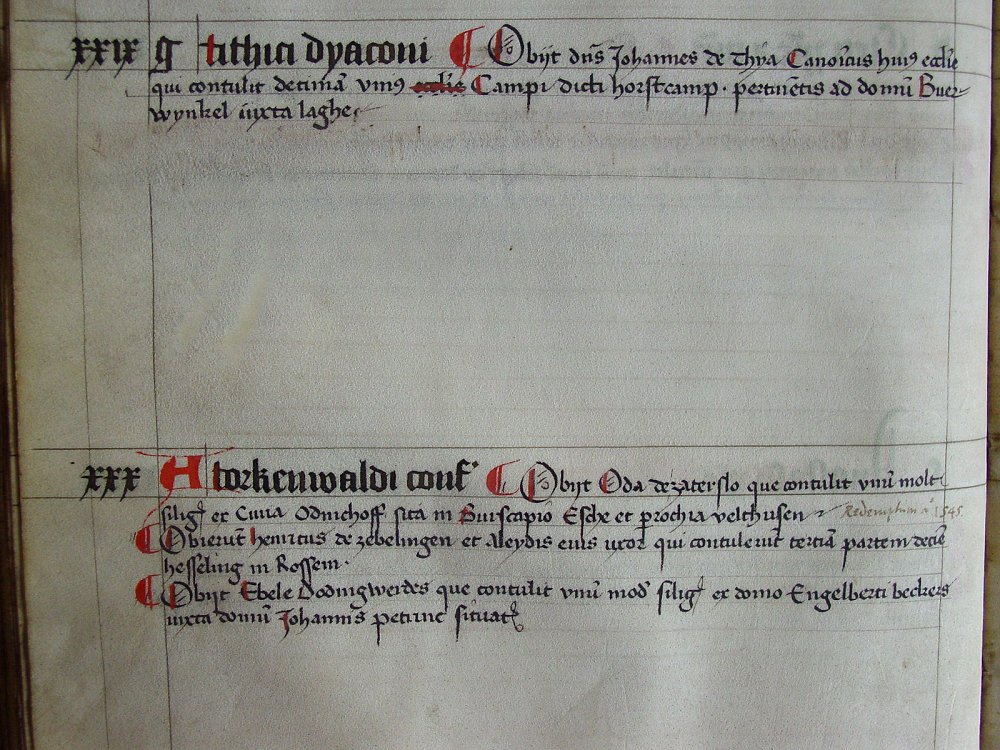 xxix g tithici dyaconi Obijt dn̄s Johannes de Thya Canoīcus huiꝰ eccl̄ie
qui contulit decimā vniꝰ eccl̄ie Campi dicti horstcamp · pertinētis ad domū Buer-
wynkel iuxta laghe
xxx A torkenwaldi conf' Obijt Oda de zaterslo que contulit vnū molt
silig' ex Curia Odinchoff sita in Burscapio Esche et prochia velthusen Redemptum aº 1545.
Obierūt henricus de zebelingen et Aleydis eius vxor qui contulerūt terciā partem decīe
hesseling in Rossem ·
Obijt Ebele Dodingwerdes que contulit vnū mod' silig' ex domo Engelberti beckers
iuxta domū Johannis petrinc situat'